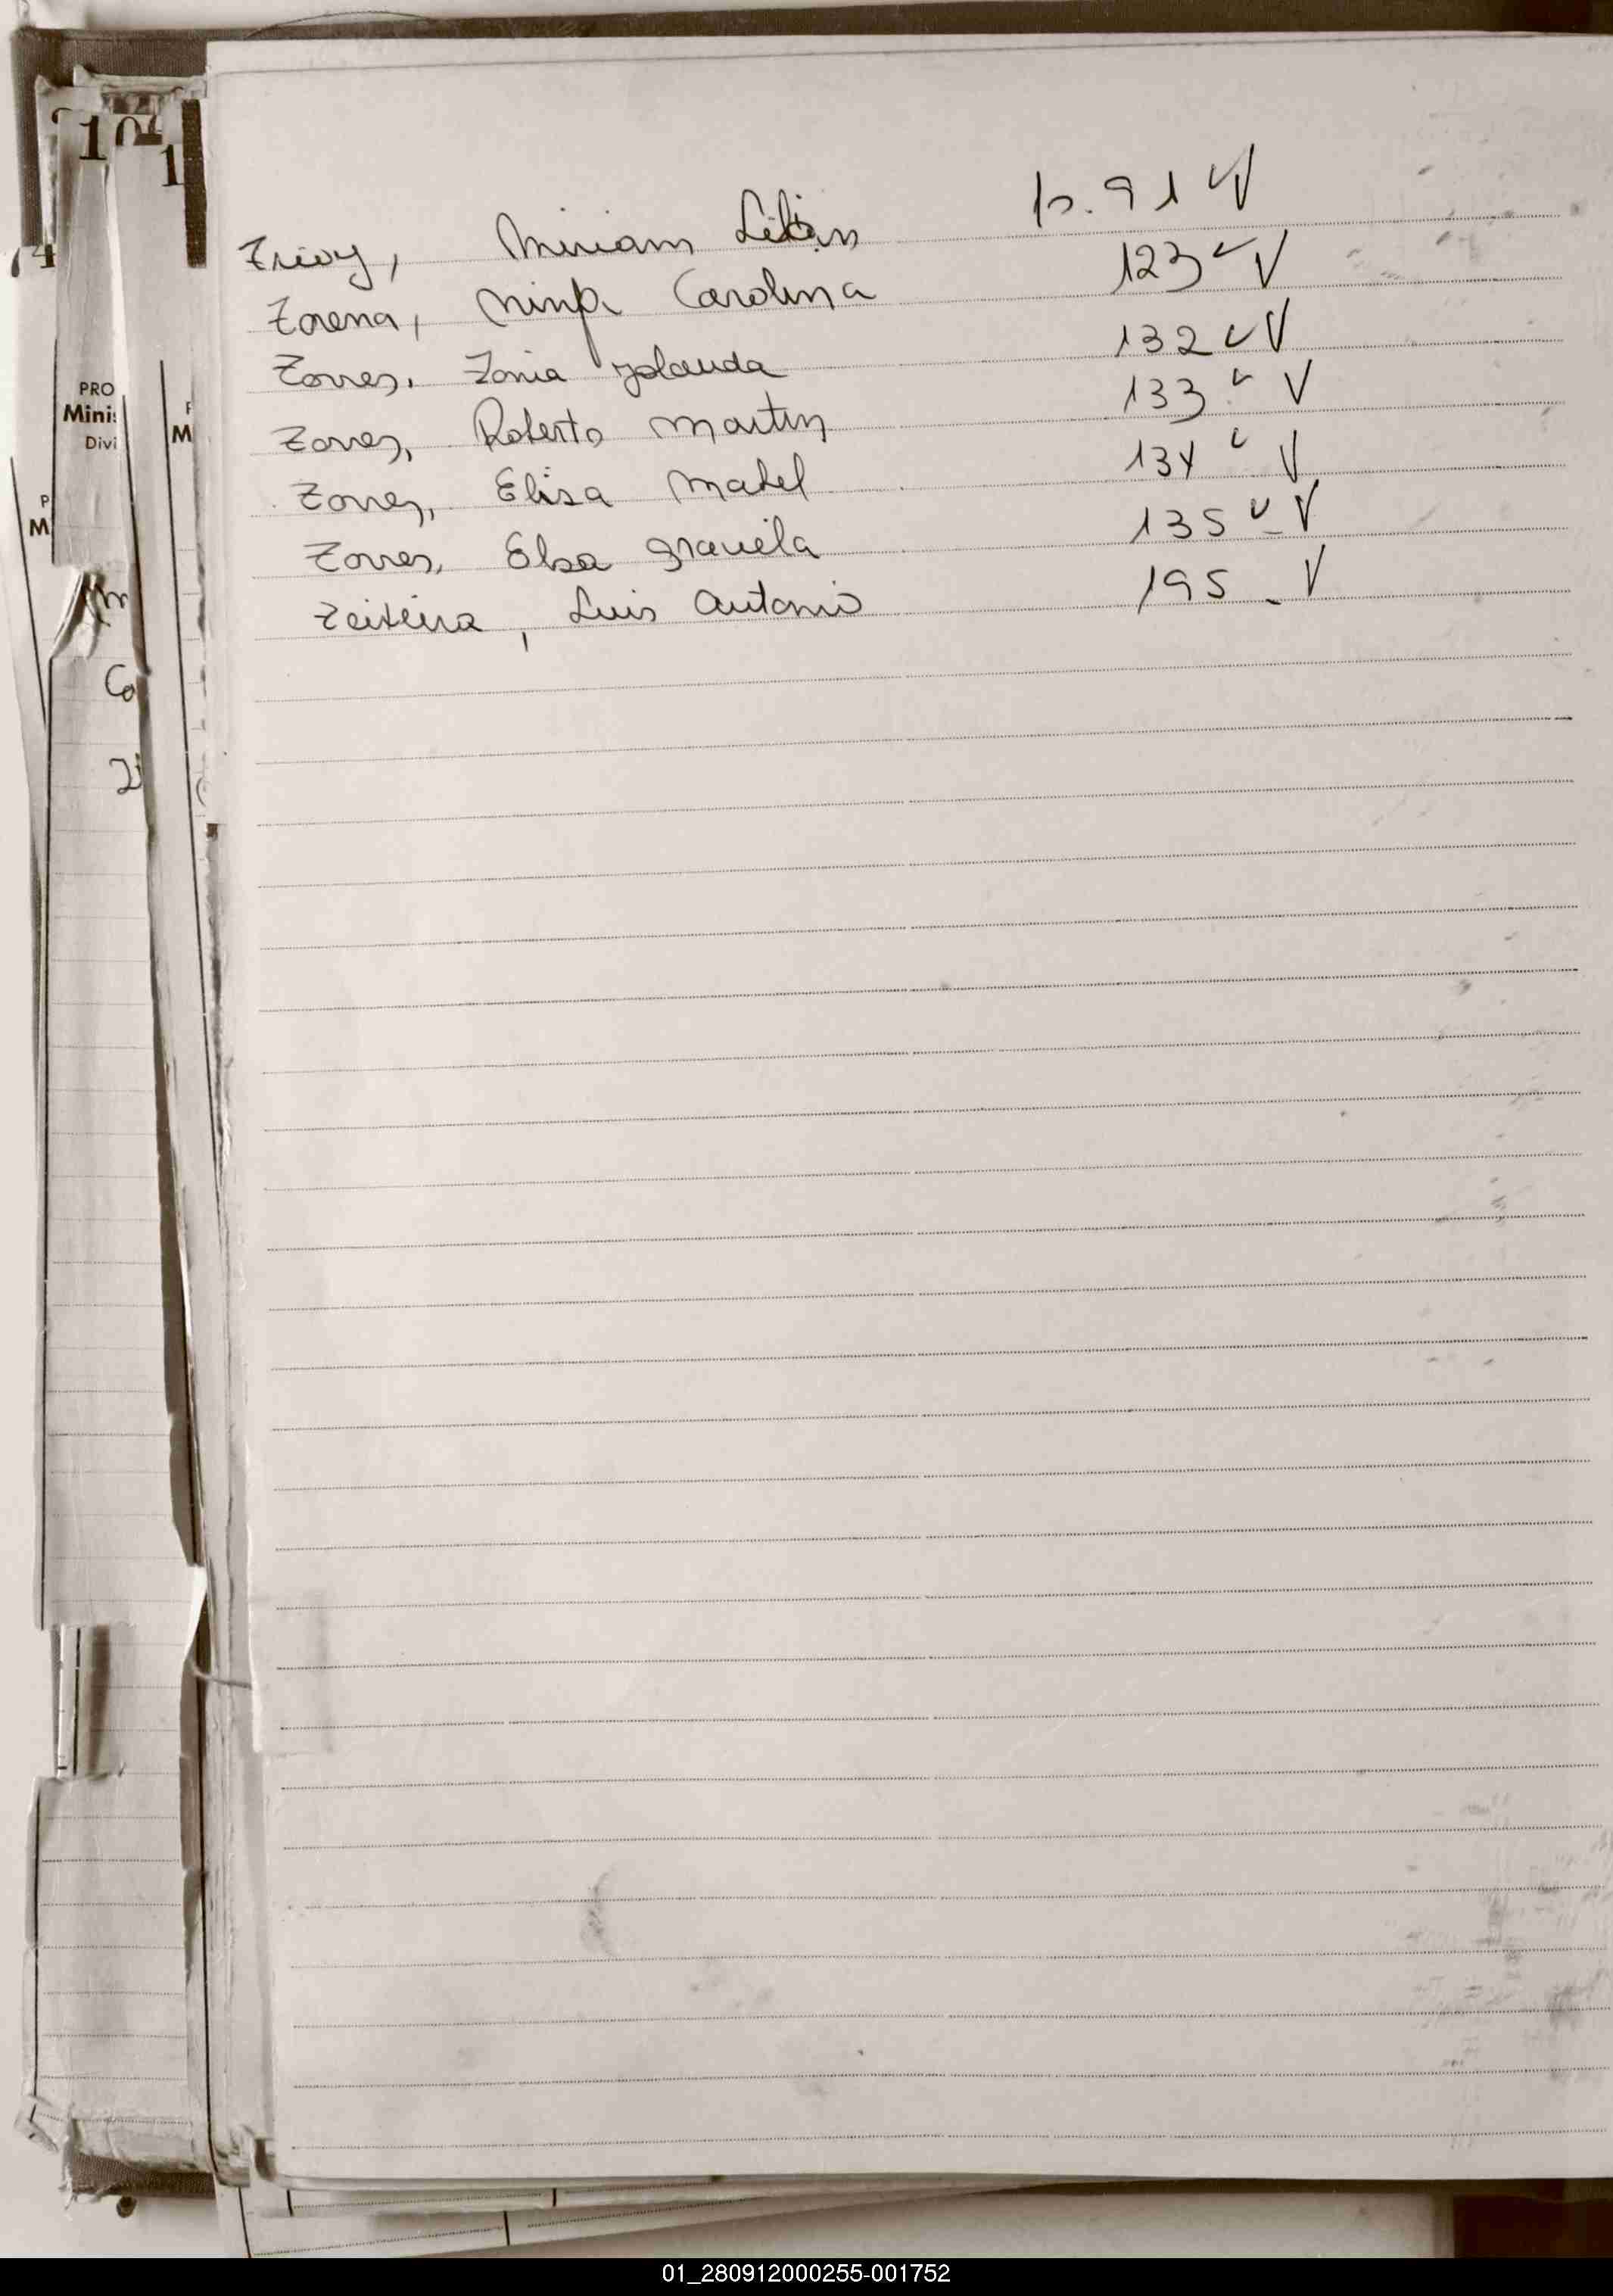 Trioy, Miriam Lilian p. 91
Torena, Ninfa Carolina 123
Torres, Tonia Yolanda 132
Torres, Roberto Martin 133
Torres, Elisa Mabel 134
Torres, Elsa Graciela 135
Teixeira, Luis Antonio 195
10
1
4
PRO
Minis
Divi
M
M
Ca
01_280912000255-001752